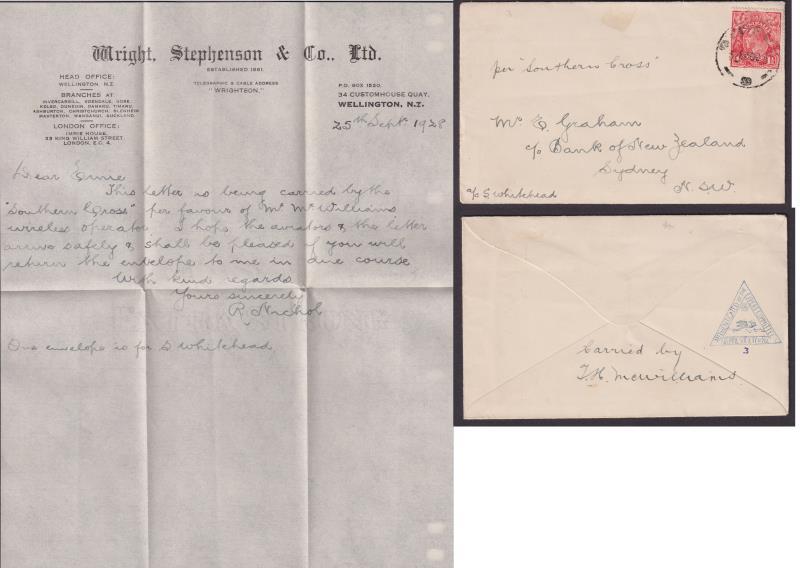 Wright, Stephenson & Co., Ltd.
ESTABLISHED 1861.
HEAD OFFICE:
WELLINGTON, N.Z.
BRANCHES AT
INVERCARGILL, EDENDALE, GORE,
KELSO, DUNEDIN, OAMARU, TIMARU,
ASHBURTON, CHRISTCHURCH, BLENHEIM
MASTERTON, WANGANUI, AUCKLAND.
LONDON OFFICE:
IMRIE HOUSE,
33 KING WILLIAM STREET,
LONDON, E.C. 4.
TELEGRAPHIC & CABLE ADDRESS
"WRIGHTSON."
P.O. BOX 1520,
34 CUSTOMHOUSE QUAY,
WELLINGTON, N.Z.
25th Sept. 1928
Dear Ernie
This letter is being carried by the
"Southern Cross" per favour of Mr McWilliams
wireless operator. I hope the aviators & the letter
arrive safely & shall be pleased if you will
return the envelope to me in due course
With kind regards
Yours sincerely
R. Nichol
One envelope is for S Whitehead.
per "Southern Cross"
Mr E. Graham
c/o Bank of New Zealand
Sydney
N.S.W.
a/c S. Whitehead
Carried by
T.H. McWilliams.
3